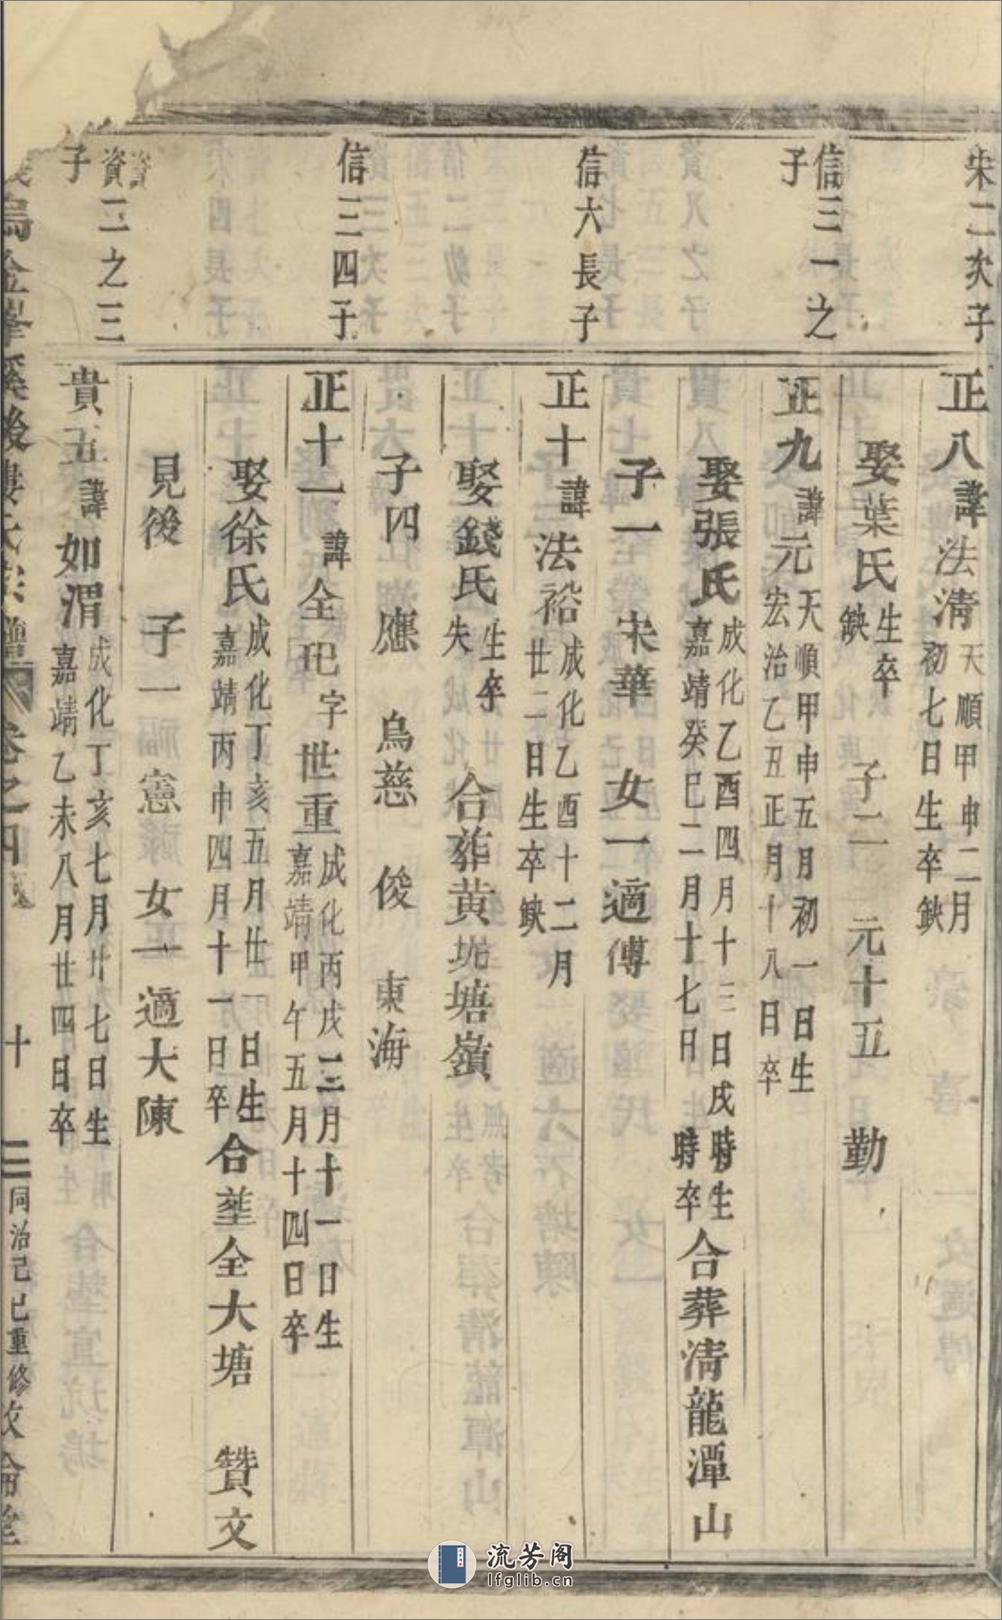 宋二次子
正八諱法清天順甲申二月初七日生卒缺
娶葉氏生卒缺 子二 元十五 勤
信三一之子
正九諱元天順甲申五月初一日生宏治乙丑正月十八日卒
娶張氏成化乙酉四月十三日戌時生嘉靖癸巳二月十七日時卒合葬清龍潭山
子一 宋華 女一適傅
信六長子
正十諱法裕成化乙酉十二月廿二日生卒缺
娶錢氏生卒失 合葬黃塘嶺
子四 應 烏慈 俊 東海
信三四子
正十一諱全玘字世重成化丙戌三月十一日生嘉靖甲午五月十四日卒
娶徐氏成化丁亥五月廿一日生嘉靖丙申四月十一日卒合塟全大塘 贊文
見後 子一福憲 女一適大陳
資二之三子
貴五諱如渭成化丁亥七月廿七日生嘉靖乙未八月廿四日卒
烏金峯溪後樓氏宗譜 卷之四 十三 同治己巳重修 敦倫堂
流芳阁
lfglib.cn